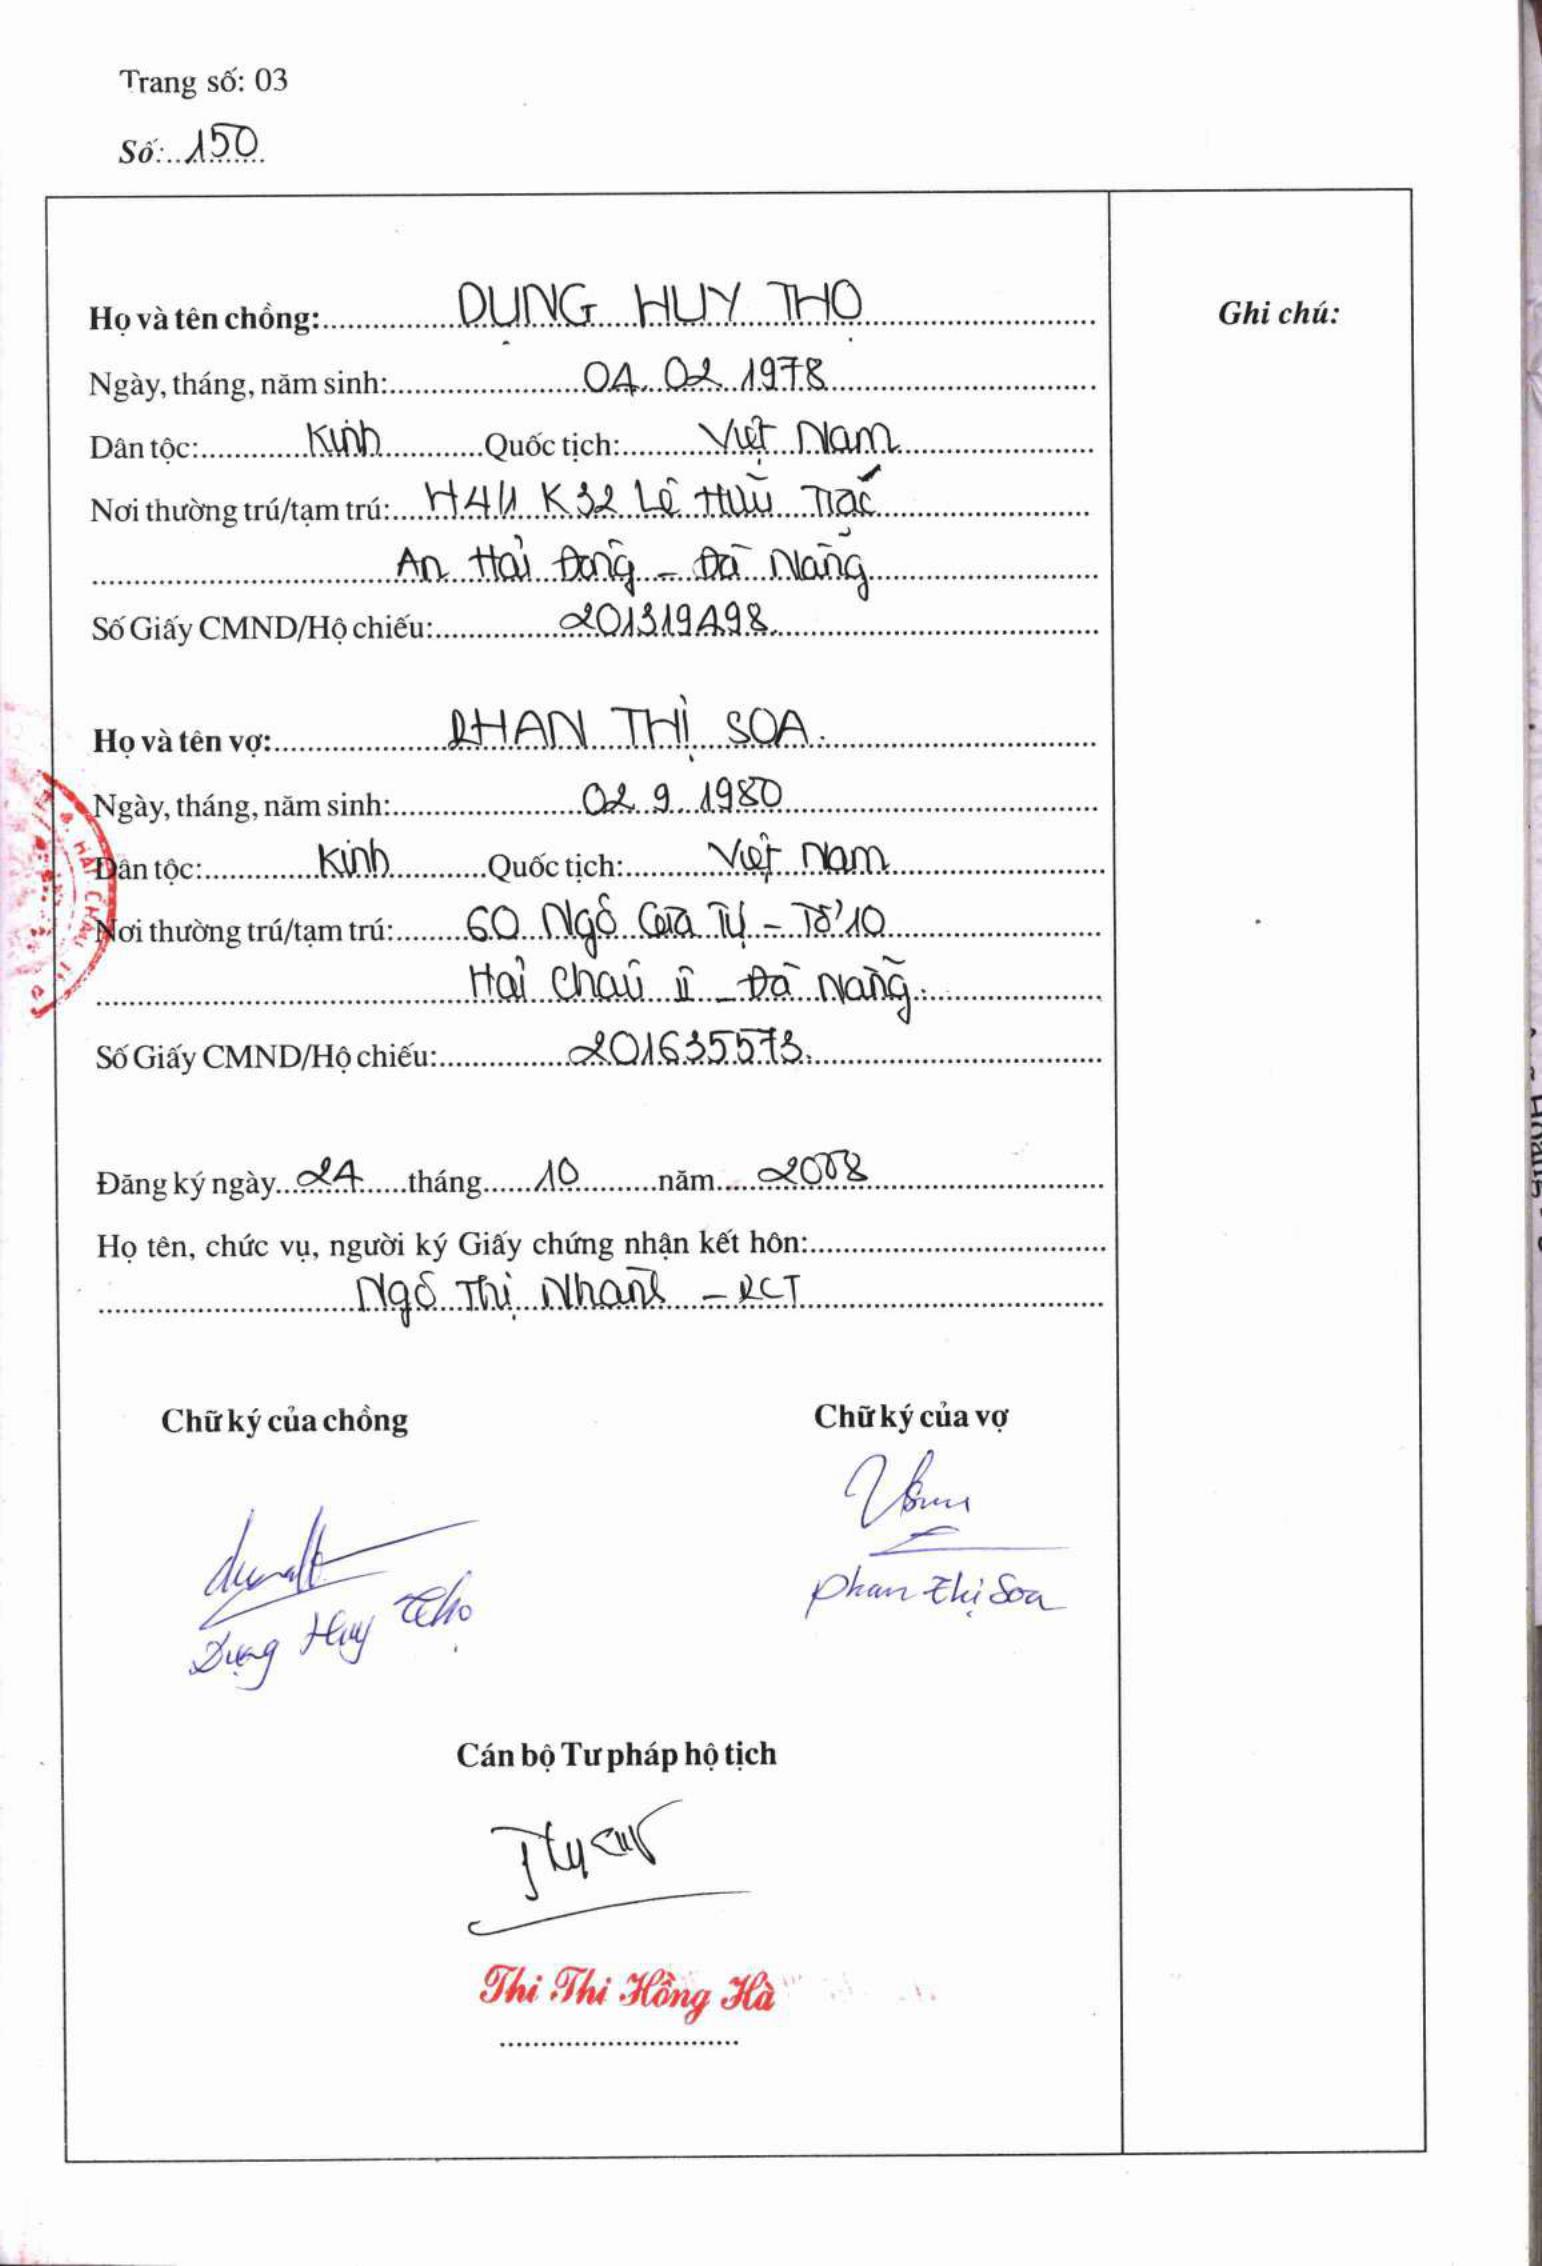 Trang số: 03
Số: 150
Họ và tên chồng: DỤNG HUY THỌ
Ghi chú:
Ngày, tháng, năm sinh: 04. 02 1978
Dân tộc: Kinh Quốc tịch: Việt Nam
Nơi thường trú/tạm trú: H4/1 K32 Lê Hữu Trác
An Hải Đông - Đà Nẵng
Số Giấy CMND/Hộ chiếu: 201319498
Họ và tên vợ: PHAN THỊ SOA
Ngày, tháng, năm sinh: 02 9 1980
Dân tộc: Kinh Quốc tịch: Việt Nam
Nơi thường trú/tạm trú: 60 Ngô Gia Tự - Tổ 10
Hải Châu II - Đà Nẵng
Số Giấy CMND/Hộ chiếu: 201635573
Đăng ký ngày 24 tháng 10 năm 2008
Họ tên, chức vụ, người ký Giấy chứng nhận kết hôn:
Ngô Thị Nhanh - PCT
Chữ ký của chồng
Chữ ký của vợ
Dụng Huy Thọ
Phan Thị Soa
Cán bộ Tư pháp hộ tịch
Thi Thi Hồng Hà